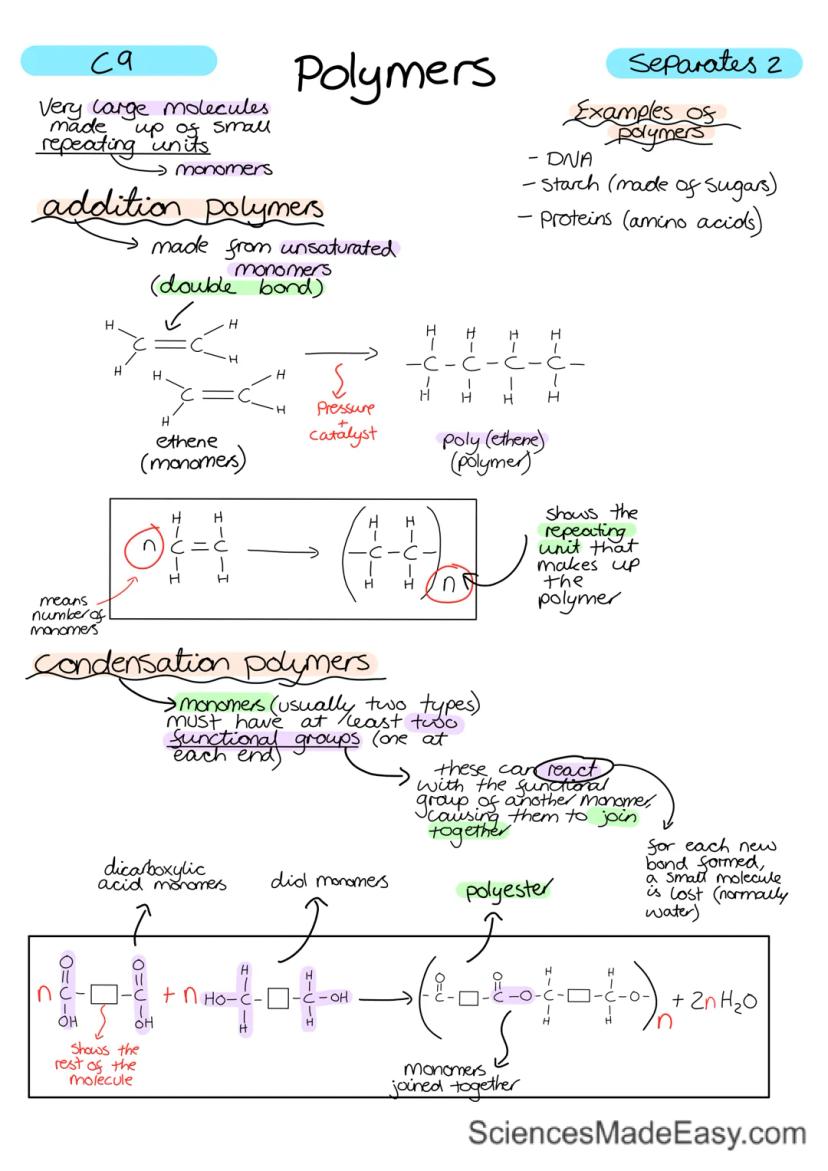 C9
Polymers
Separates 2
Very large molecules
made up of small
repeating units
monomers
Examples of
polymers
- DNA
- Starch (made of sugars)
- Proteins (amino acids)
addition polymers
made from unsaturated
monomers
(double bond)
H H
C=C
H H
H H
C=C
H H
ethene
(monomers)
Pressure
+
catalyst
H H H H
-C-C-C-C-
H H H H
poly (ethene)
(polymer)
H H
n C=C
H H
means
number of
monomers
H H
(-C-C-)
H H n
shows the
repeating
unit that
makes up
the
polymer
Condensation polymers
monomers (usually two types)
must have at least two
functional groups (one at
each end)
these can react
with the functional
group of another monomer,
causing them to join
together
for each new
bond formed,
a small molecule
is lost (normally
water)
dicarboxylic
acid monomers
diol monomers
polyester
O O
n C-□-C
OH OH
+ n
H H
HO-C-□-C-OH
H H
O O H H
(-C-□-C-O-C-□-C-O-)n + 2nH2O
H H
Shows the
rest of the
molecule
Monomers
joined together
SciencesMadeEasy.com